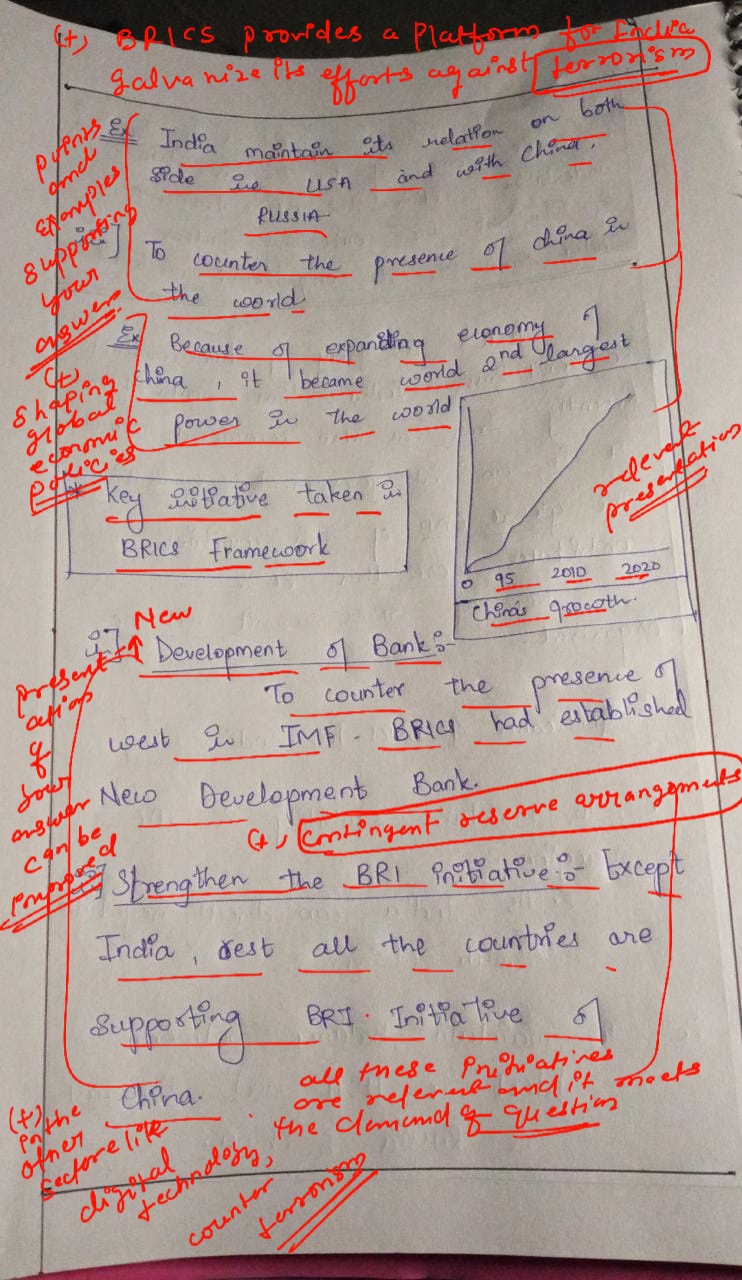 (+) BRICS provides a platform for India
galvanize its efforts against terrorism
points
and
Examples
supporting
your
answer
Ex India maintain its relation on both
side i.e USA and with China,
RUSSIA
ii] To counter the presence of china in
the world.
Ex Because of expanding economy of
China, it became world 2nd largest
power in the world
(+)
shaping
global
economic
policies
relevent
presentation
0 95 2010 2020
China's growth.
* Key initiative taken in
BRICS Framework
New
i] Development of Bank:-
To counter the presence of
west in IMF. BRICS had established
New Development Bank.
(+) Contingent reserve arrangements
present
ation
of
your
answer
can be
improved
Strengthen the BRI initiative:- Except
India, rest all the countries are
supporting BRI. Initiative of
China.
all these initiatives
are relevent and it meets
the demand of question
(+)
in the
other
sectore like
digital
technology,
counter
terrorism